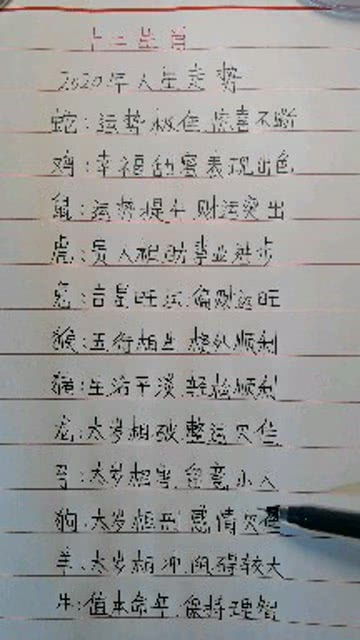 十二生肖
2020年人生走势
蛇:运势极佳 惊喜不断
鸡:幸福甜蜜 表现出色
鼠:运势提升 财运突出
虎:贵人相助 事业进步
兔:吉星旺运 偏财运旺
猴:五行相生 格外顺利
猪:生活平淡 轻松顺利
龙:太岁相破 整运欠佳
马:太岁相害 鱼鸢小人
狗:太岁相刑 感情欠佳
羊:太岁相冲 阻碍较大
牛:值本命年 保持理智